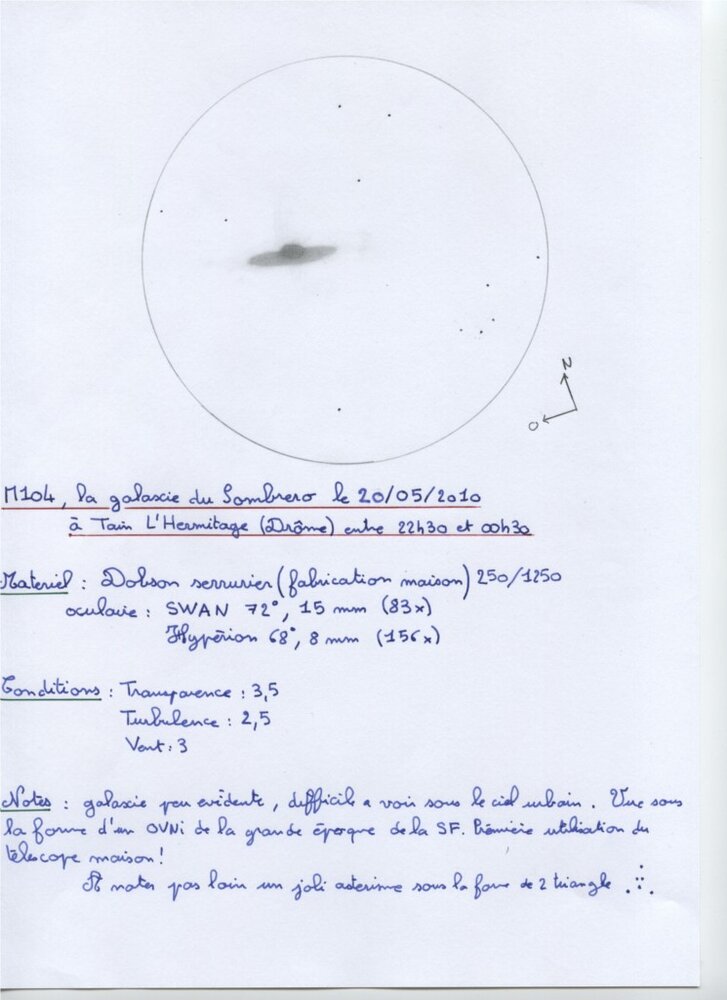 N
O
M104, la galaxie du Sombrero le 20/05/2010
à Tain L'Hermitage (Drôme) entre 22h30 et 00h30
Materiel : Dobson serrurier (fabrication maison) 250/1250
oculaire : SWAN 72°, 15 mm (83x)
Hypérion 68°, 8 mm (156x)
Conditions : Transparence : 3,5
Turbulence : 2,5
Vent : 3
Notes : galaxie peu evidente, difficile a voir sous le ciel urbain. Vue sous
la forme d'un OVNi de la grande époque de la SF. Première utilisation du
télescope maison !
A noter pas loin un joli asterisme sous la forme de 2 triangle